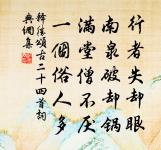 行者失却眼
南泉破却锅
满堂僧不厌
一個俗人多
释法演颂古二十四首词
典網集